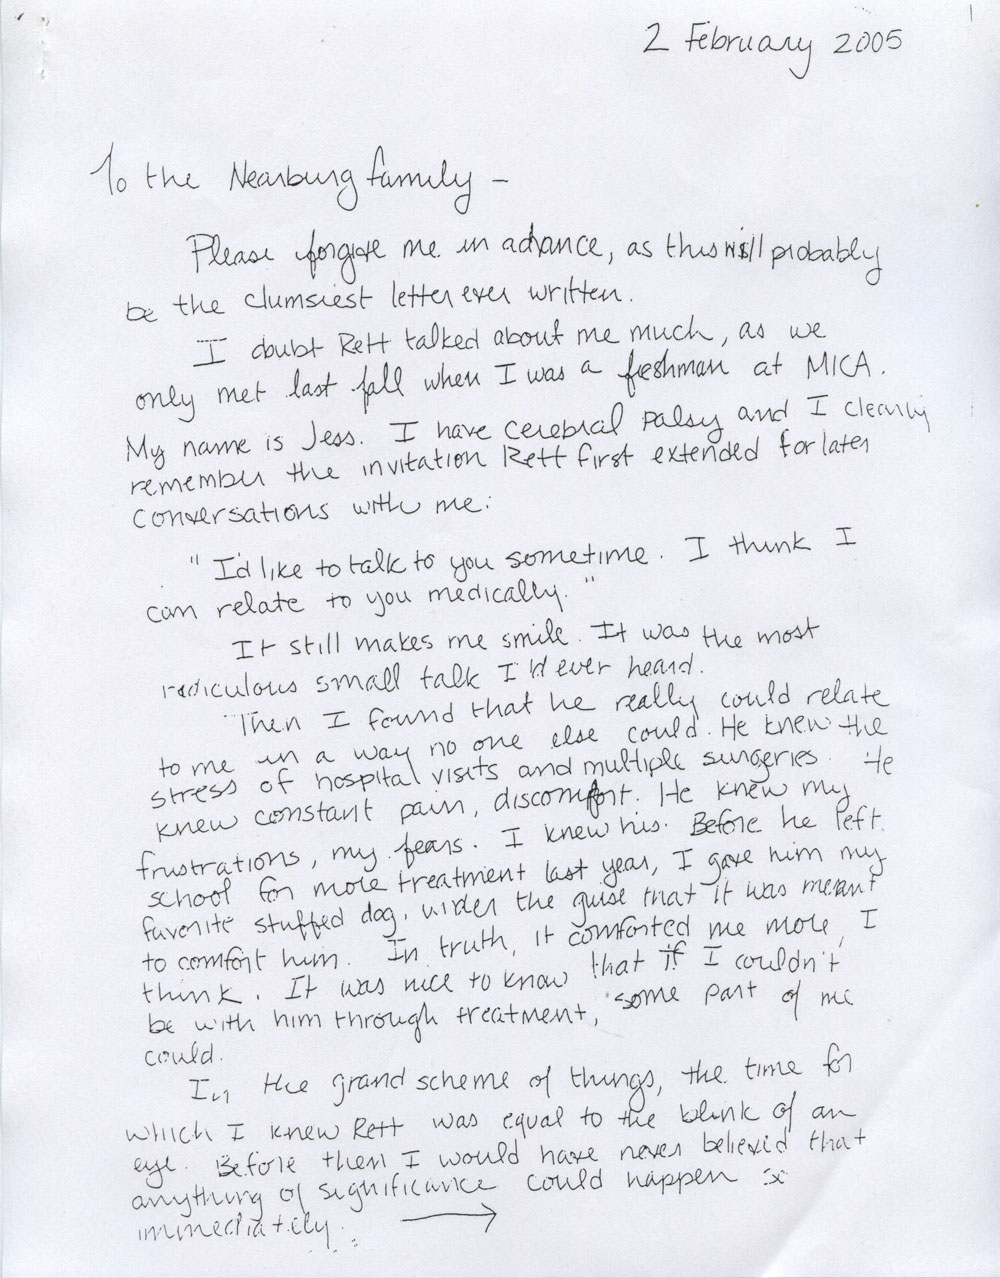 2 February 2005
To the Nearburg family –
Please forgive me in advance, as this will probably
be the clumsiest letter ever written.
I doubt Rett talked about me much, as we
only met last fall when I was a freshman at MICA.
My name is Jess. I have cerebral palsy and I clearly
remember the invitation Rett first extended for later
conversations with me:
"I'd like to talk to you sometime. I think I
can relate to you medically."
It still makes me smile. It was the most
rediculous small talk I'd ever heard.
Then I found that he really could relate
to me in a way no one else could. He knew the
stress of hospital visits and multiple surgeries. He
knew constant pain, discomfort. He knew my
frustrations, my fears. I knew his. Before he left
school for more treatment last year, I gave him my
favorite stuffed dog, under the guise that it was meant
to comfort him. In truth, it comforted me more, I
think. It was nice to know that if I couldn't
be with him through treatment, some part of me
could.
In the grand scheme of things, the time for
which I knew Rett was equal to the blink of an
eye. Before then I would have never believed that
anything of significance could happen so
immediately. →